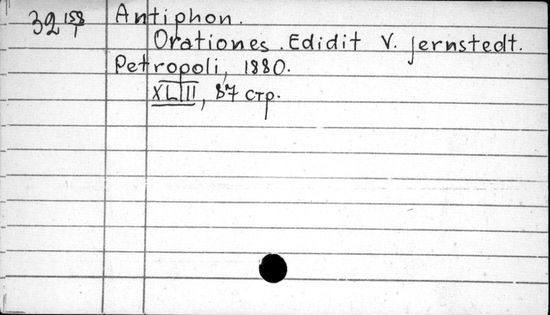 32 158/1 Antiphon.
Orationes. Edidit V. Jernstedt.
Petropoli, 1880.
XLIII, 87 стр.